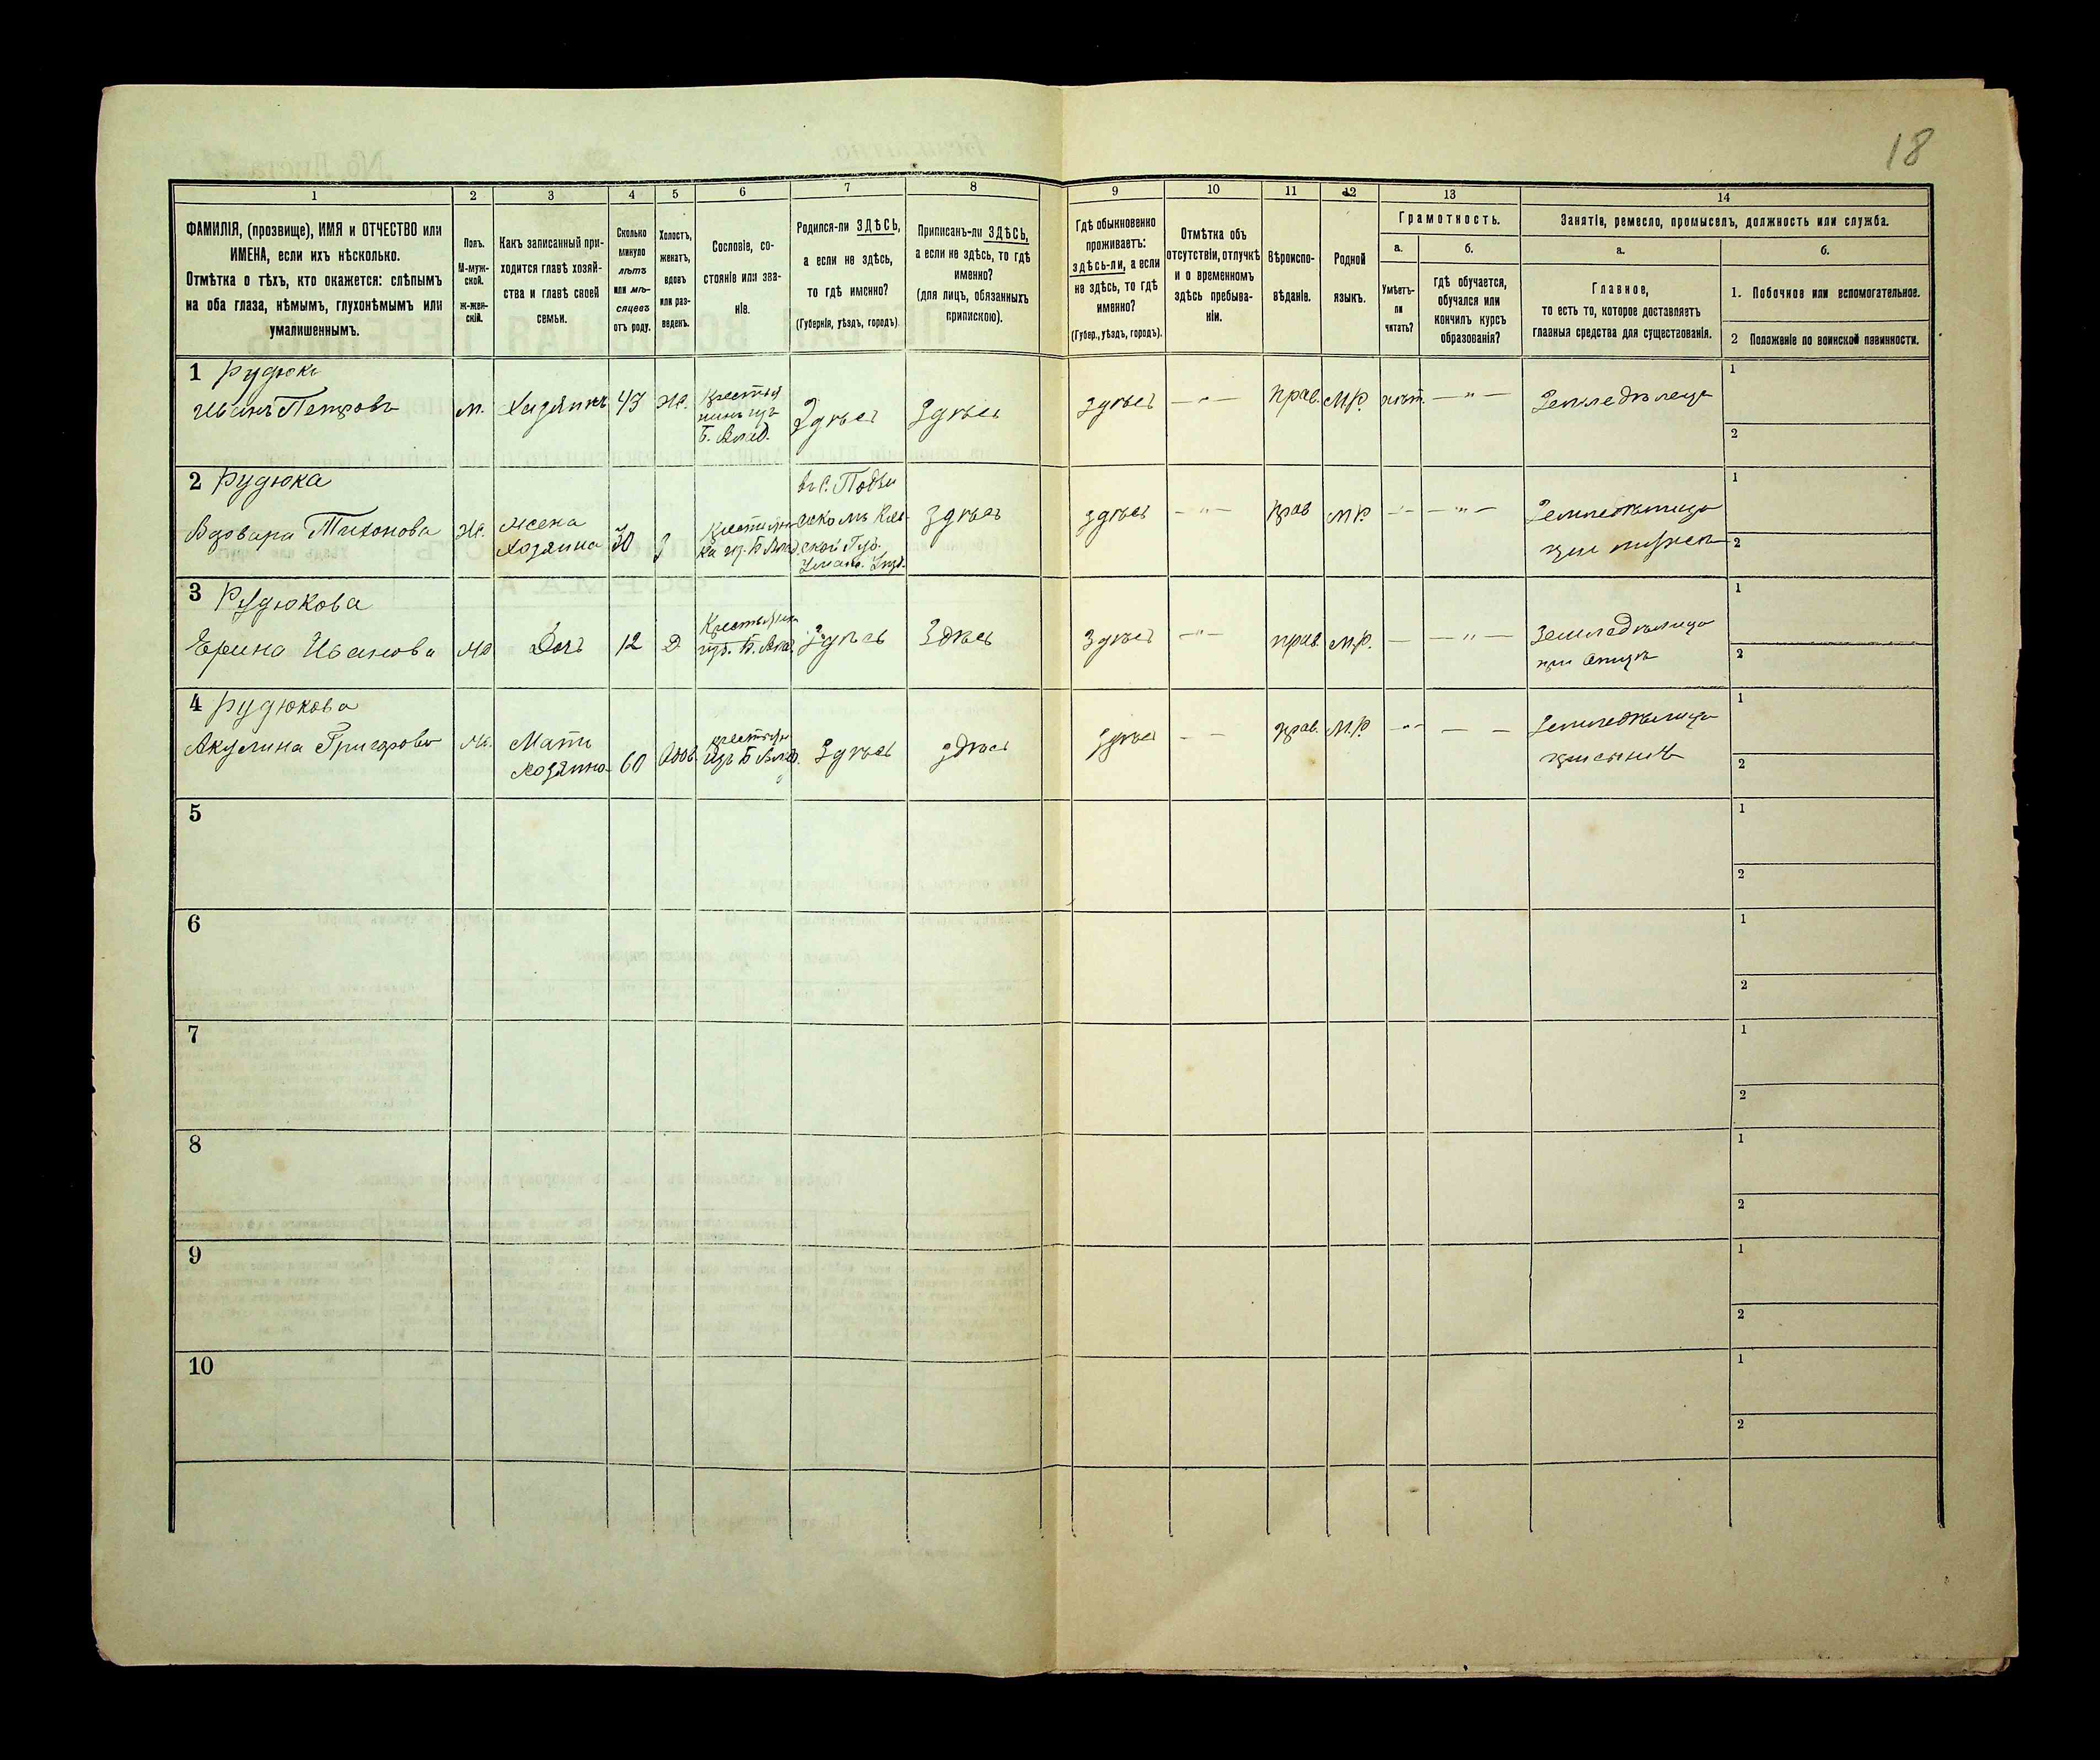 18
1 2 3 4 5 6 7 8 9 10 11 12 13 14
ФАМИЛІЯ, (прозвище), ИМЯ и ОТЧЕСТВО или
ИМЕНА, если ихъ нѣсколько.
Отмѣтка о тѣхъ, кто окажется: слѣпымъ
на оба глаза, нѣмымъ, глухонѣмымъ или
умалишеннымъ.
Полъ.
М-муж-
ской.
ж-жен-
скій.
Какъ записанный при-
ходится главѣ хозяй-
ства и главѣ своей
семьи.
Сколько
минуло
лѣтъ
или мѣ-
сяцевъ
отъ роду.
Холостъ,
женатъ,
вдовъ
или раз-
веденъ.
Сословіе, со-
стояніе или зва-
ніе.
Родился-ли ЗДѢСЬ,
а если не здѣсь,
то гдѣ именно?
(Губернія, уѣздъ, городъ)
Приписанъ-ли ЗДѢСЬ,
а если не здѣсь, то гдѣ
именно?
(для лицъ, обязанныхъ
припискою).
Гдѣ обыкновенно
проживаетъ:
здѣсь-ли, а если
не здѣсь, то гдѣ
именно?
(Губер., уѣздъ, городъ).
Отмѣтка объ
отсутствіи, отлучкѣ
и о временномъ
здѣсь пребыва-
ніи.
Вѣроиспо-
вѣданіе.
Родной
языкъ.
Грамотность.
а.
Умѣетъ-
ли
читать?
б.
гдѣ обучается,
обучался или
кончилъ курсъ
образованія?
Занятія, ремесло, промыселъ, должность или служба.
а.
Главное,
то есть то, которое доставляетъ
главныя средства для существованія.
б.
1. Побочное или вспомогательное.
2 Положеніе по воинской повинности.
1 Рудюкъ
Иванъ Петровъ
м.
Хазяинъ
43
Ж.
Крестья
нинъ изъ
Б. Влад.
Здѣсь
Здѣсь
Здѣсь
— " —
прав.
М.Р.
нѣт.
— " —
Земледѣлецъ
1
2
2 Рудюка
Тихонова
Ж.
Жена
Хозяина
30
ка из. Б Влад.
въ С.
ской Губ.
Уман. Уѣзд.
Здѣсь
Здѣсь
— " —
прав
М.Р.
— " —
Земледѣлица
при
1
2
3 Рудюкова
Ивановa
Ж
Дочь
12
Д
Крестьянка
изъ. Б. Влад.
Здѣсь
Здѣсь
Здѣсь
— " —
прав.
М.Р.
—
— " —
Земледѣлица
при отцѣ
1
2
4 Рудюкова
Акулина Григорова
Ж.
Мати
Хозяина
60
Вдов.
изъ Б Влад.
Здѣсь
здѣсь
Здѣсь
— —
прав.
М.Р.
— —
Земледѣлица
при сынѣ
1
2
5
1
2
6
1
2
7
1
2
8
1
2
9
1
2
10
1
2